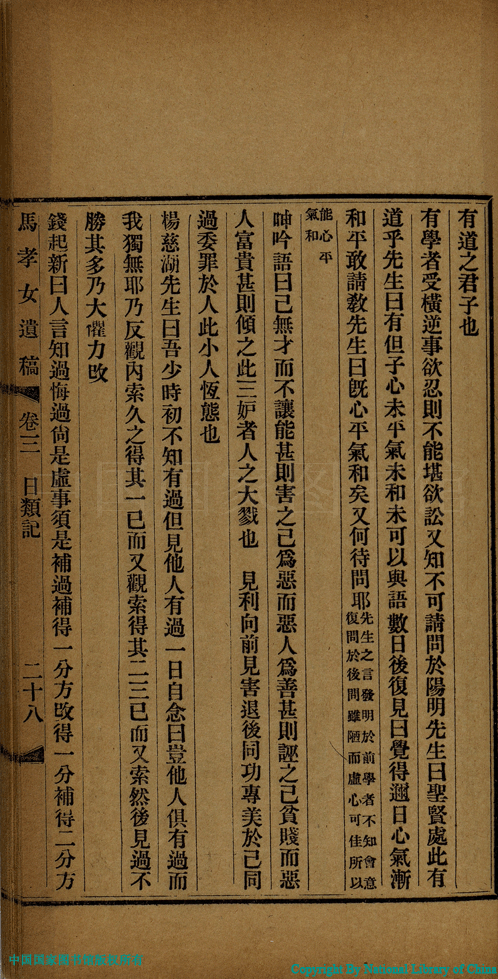 有道之君子也
有學者受橫逆事欲忍則不能堪欲訟又知不可請問於陽明先生曰聖賢處此有
道乎先生曰有但子心未平氣未和未可以與語數日後復見曰覺得邇日心氣漸
和平敢請教先生曰旣心平氣和矣又何待問耶先生之言發明於前學者不知會意
復問於後問雖陋而虛心可佳所以
能心平
氣和
呻吟語曰己無才而不讓能甚則害之己爲惡而惡人爲善甚則誣之己貧賤而惡
人富貴甚則傾之此三妒者人之大戮也 見利向前見害退後同功專美於己同
過委罪於人此小人恆態也
楊慈湖先生曰吾少時初不知有過但見他人有過一日自念曰豈他人俱有過而
我獨無耶乃反觀內索久之得其一已而又觀索得其二三已而又索然後見過不
勝其多乃大懼力改
錢起新曰人言知過悔過尙是虛事須是補過補得一分方改得一分補得二分方
馬孝女遺稿 卷三 日類記 二十八
中国国家图书馆版权所有
Copyright By National Library of China